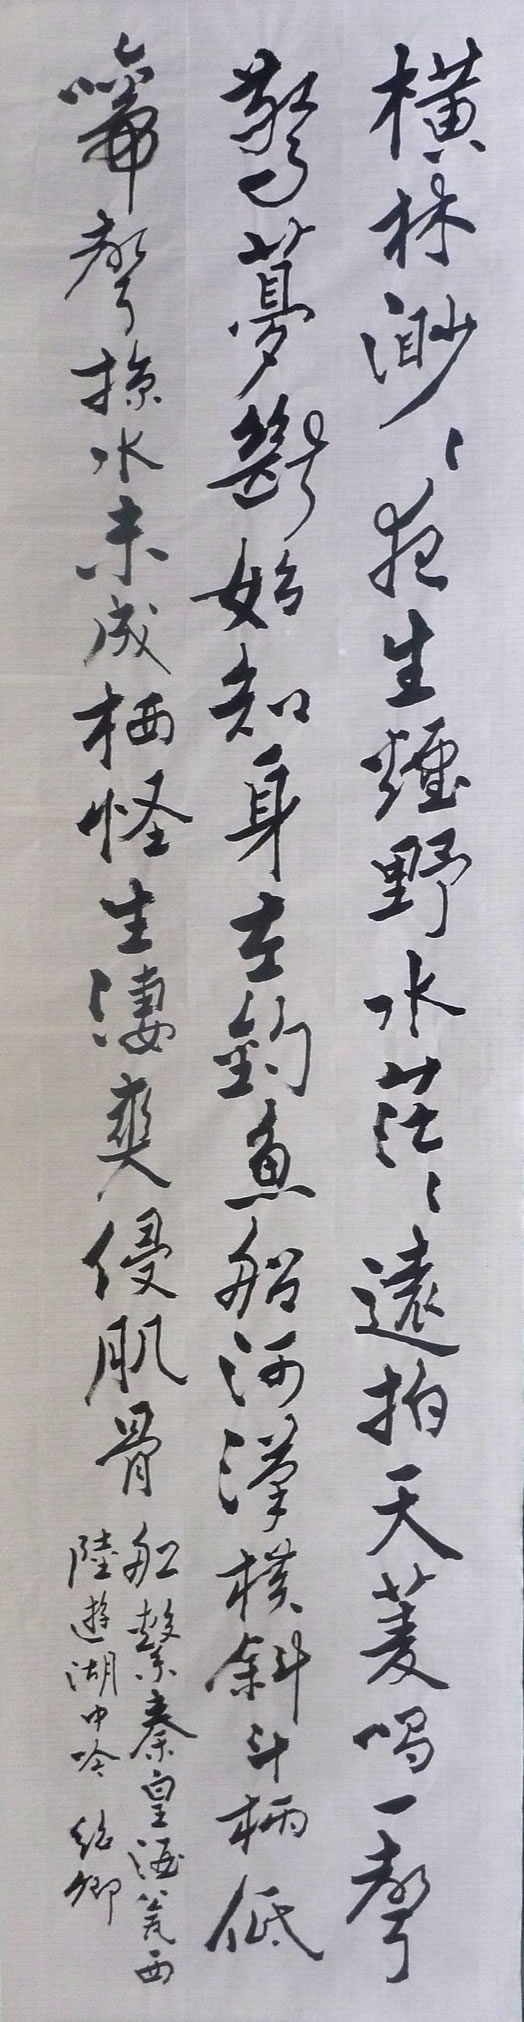 橫林渺〻夜生煙野水茫〻遠拍天菱唱一聲
驚夢斷始知身在釣魚船河漢橫斜斗柄低
啼聲掠水未成栖怪生淒爽侵肌骨
舡繫秦皇酒瓮西
陸遊湖中吟 紹卿